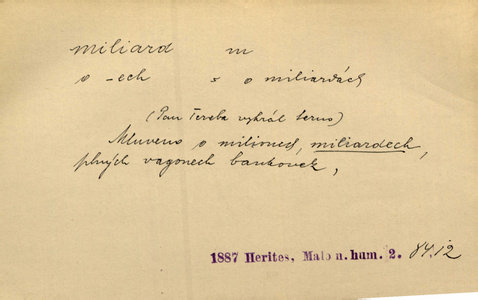 miliard m
o -ech × o miliardách
(Pan Tereba vyhrál terno)
Mluveno o milionech, miliardech,
plných vagonech bankovek,
1887 Herites, Malo n. hum. 2. 84.12